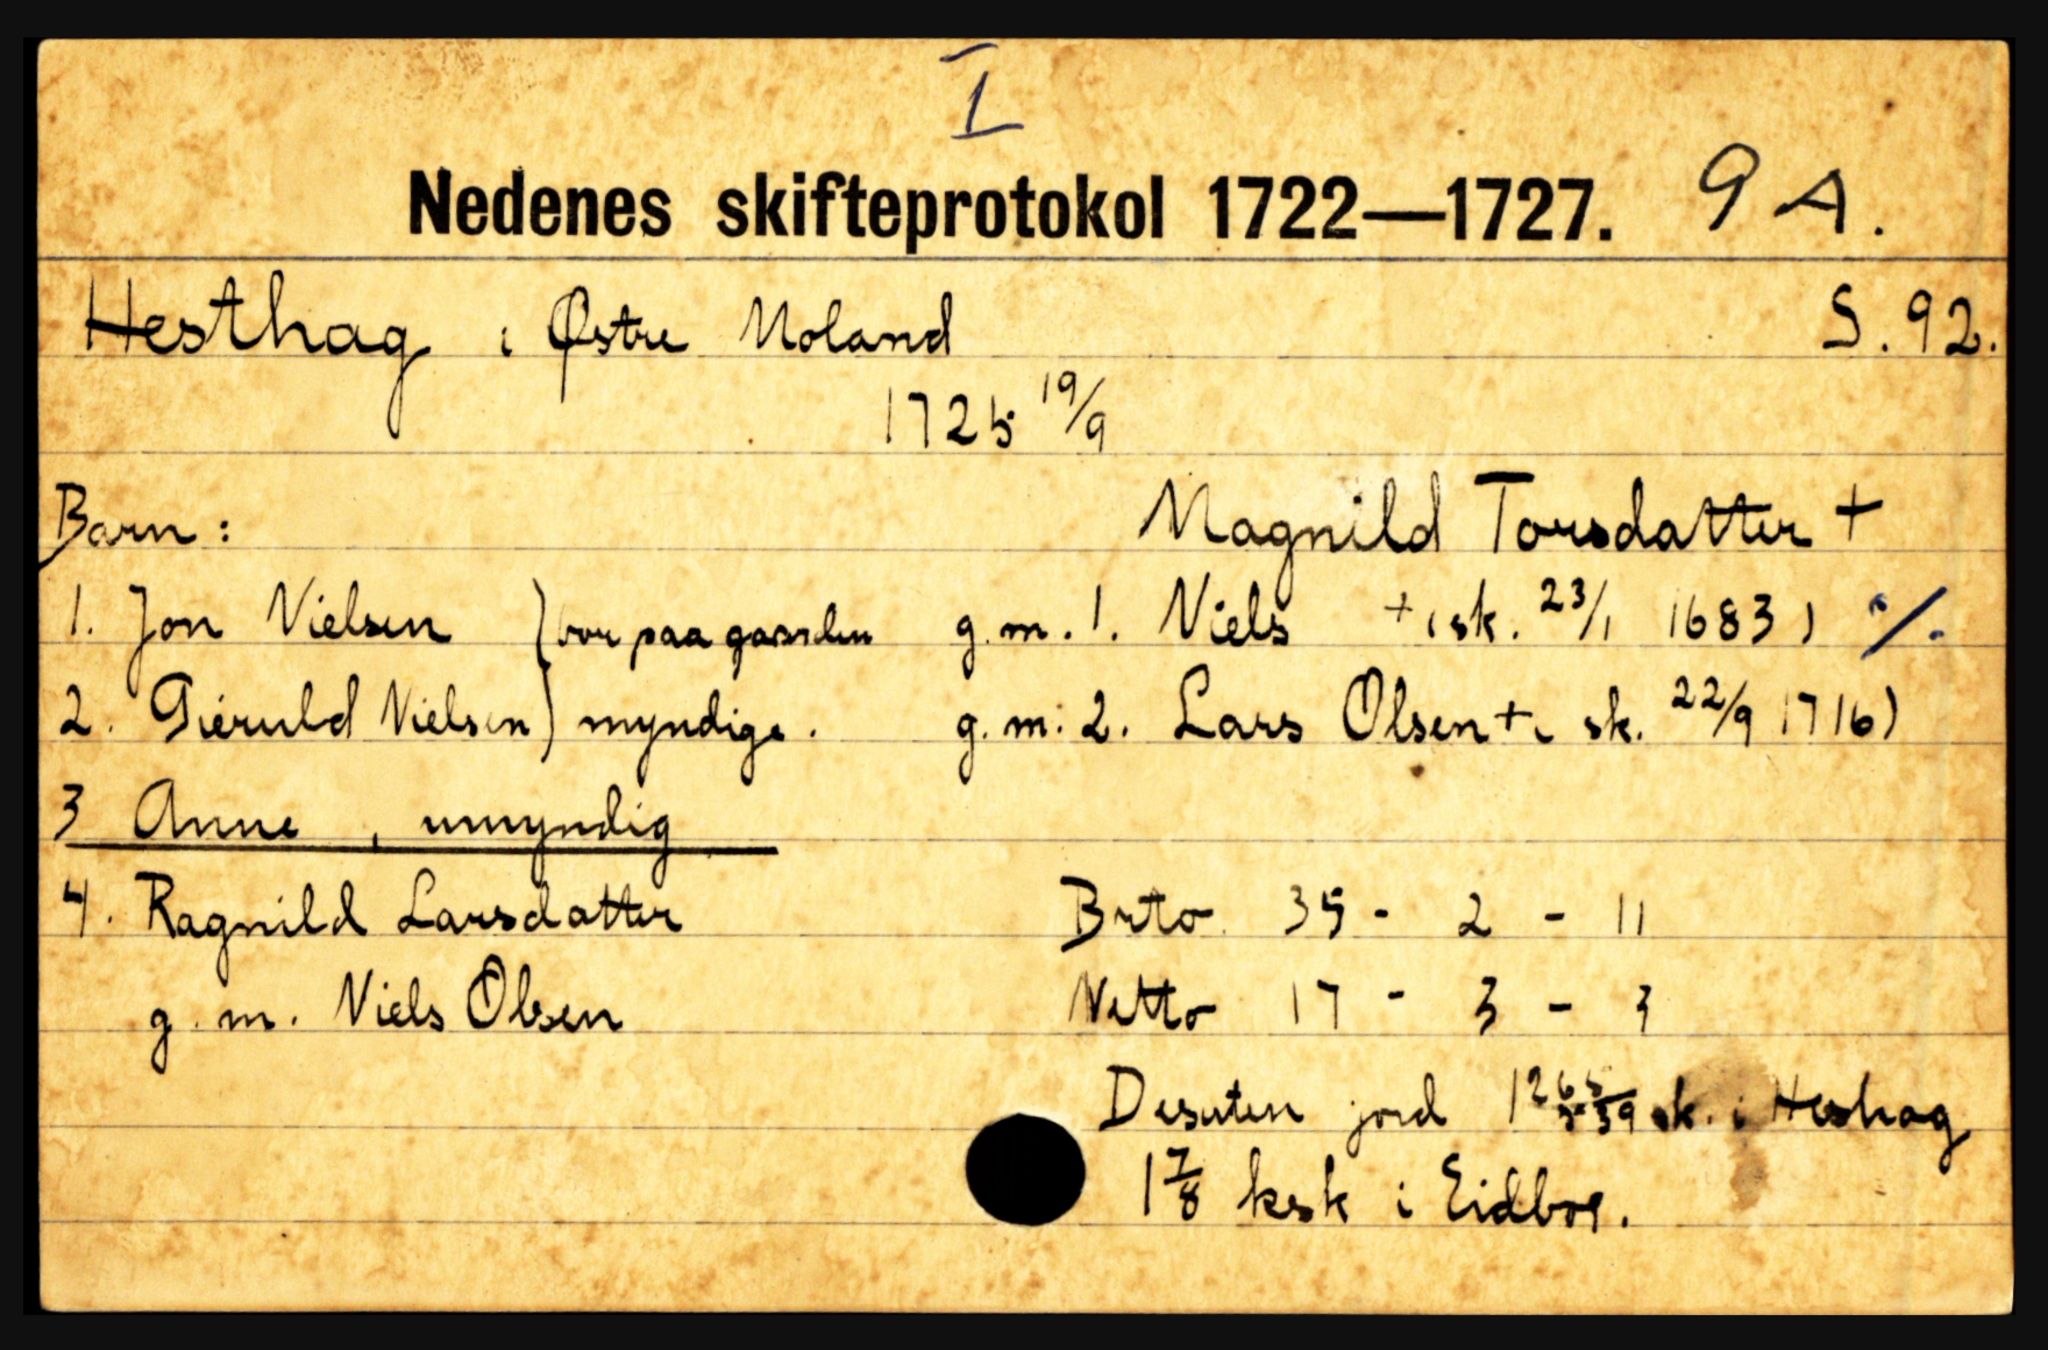 I
Nedenes skifteprotokol 1722—1727. 9 A.
Hesthag i Østre Moland S. 92.
1725 19/9
Barn: Magnild Torsdatter +
1. Jon Nielsen ) bor paa gaarden g.m. 1. Niels + (sk. 23/1 1683) ./.
2. Gieruld Nielsen ) myndige. g.m. 2. Lars Olsen + ( sk. 22/9 1716)
3 Anne , umyndig
4. Ragnild Larsdatter Brto 35 - 2 - 11
g.m. Niels Olsen Netto 17 - 3 - 3
Desuten jord sk. i Heshag
1 7/8 ksk i Eidbo.